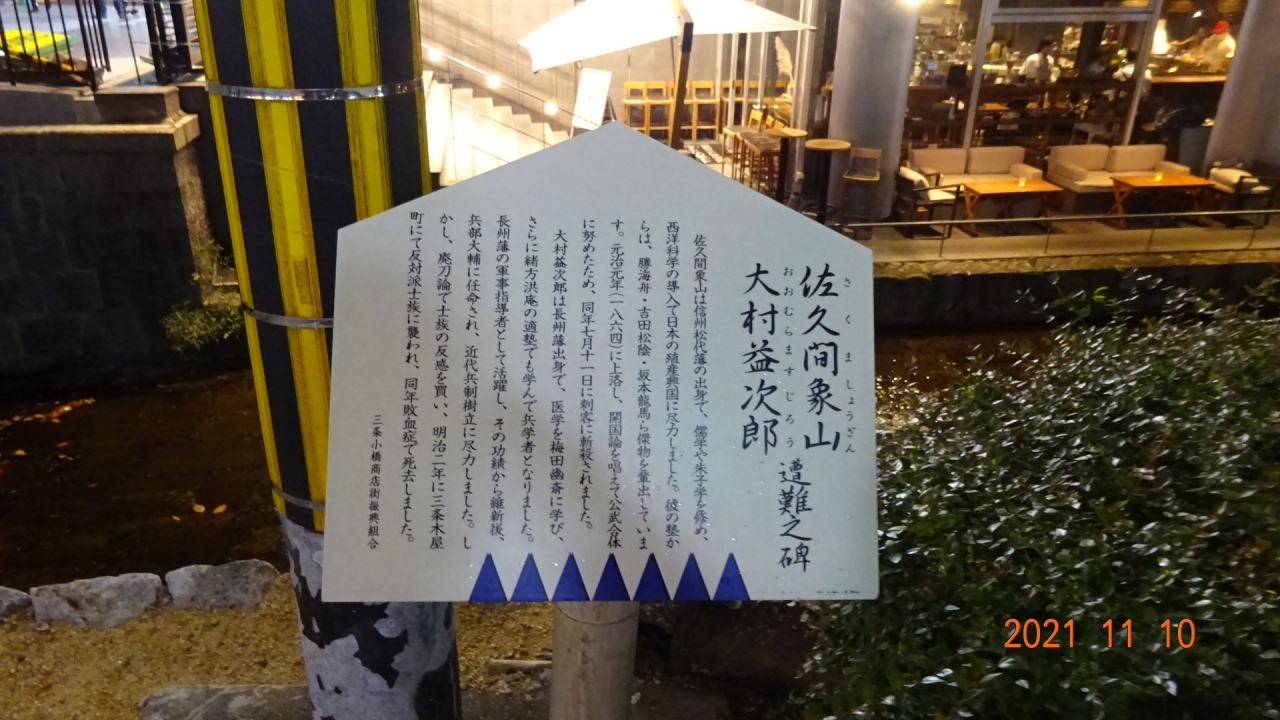 佐久間象山
さくましょうざん
大村益次郎
おおむらますじろう
遭難之碑
佐久間象山は信州松代藩の出身で、儒学や朱子学を修め、
西洋科学の導入で日本の殖産興国に尽力しました。彼の塾か
らは、勝海舟・吉田松陰・坂本龍馬ら傑物を輩出していま
す。元治元年(一八六四)に上洛し、開国論を唱えて公武合体
に努めたため、同年七月十一日に刺客に斬殺されました。
大村益次郎は長州藩出身で、医学を梅田幽斎に学び、
さらに緒方洪庵の適塾でも学んで兵学者となりました。
長州藩の軍事指導者として活躍し、その功績から維新後、
兵部大輔に任命され、近代兵制樹立に尽力しました。し
かし、廃刀論で士族の反感を買い、明治二年に三条木屋
町にて反対派士族に襲われ、同年敗血症で死去しました。
三条小橋商店街振興組合
2021 11 10